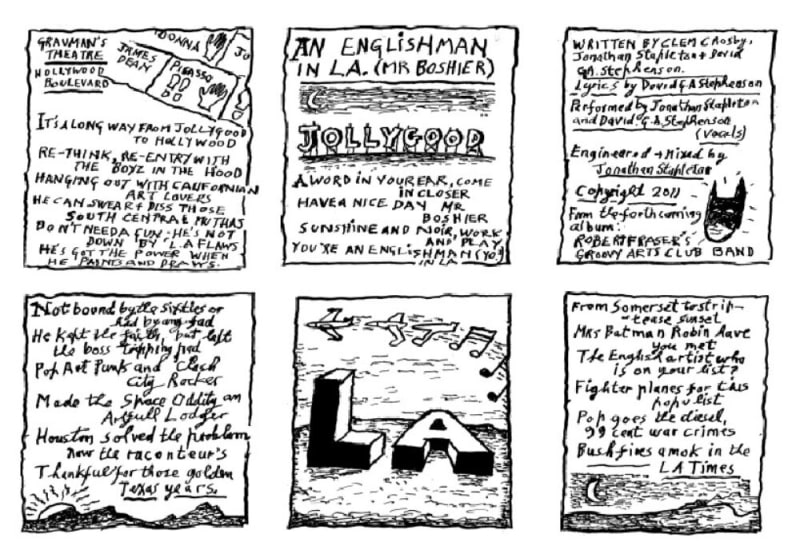 GRAUMAN'S
THEATRE
HOLLYWOOD
BOULEVARD
DONNA
JO
JAMES
DEAN
PICASSO
IT'S A LONG WAY FROM JOLLYGOOD
TO HOLLYWOOD
RE-THINK, RE-ENTRY WITH
THE BOYZ IN THE HOOD
HANGING OUT WITH CALIFORNIAN
ART LOVERS
HE CAN SWEAR & DISS THOSE
SOUTH CENTRAL MUTHAS
DON'T NEED A GUN: HE'S NOT
DOWN BY L.A FLAWS
HE'S GOT THE POWER WHEN
HE PAINTS AND DRAWS.
AN ENGLISHMAN
IN L.A. (MR BOSHIER)
JOLLYGOOD
A WORD IN YOUR EAR, COME
IN CLOSER
HAVE A NICE DAY MR
BOSHIER
SUNSHINE AND NOIR, WORK
AND PLAY
YOU'RE AN ENGLISHMAN (YO)
IN LA
WRITTEN BY CLEM CROSBY,
Jonathan Stapleton + David
G.A. Stephenson.
Lyrics by David G A Stephenson
Performed by Jonathan Stapleton
and David. G. A. Stephenson
(Vocals)
Engineered + Mixed by
Jonathan Stapleton
Copyright 2011
From the forthcoming
album:
ROBERT FRASER'S
GROOVY ARTS CLUB BAND
Not bound by the Sixties or
had by any fad
He kept the faith, but left
the boss tripping pad
Pop Art Punk and Clash
City Rocker
Made the Space Oddity an
Artfull Lodger
Houston solved the problem
now the raconteur's
Thankful for those golden
Texas years.
LA
From Somerset to strip-
tease sunset
Mrs Batman Robin have
you met
The English artist who
is on your list?
Fighter planes for this
popu list
Pop goes the diesel,
99 cent war crimes
Bush fires amok in the
LA Times